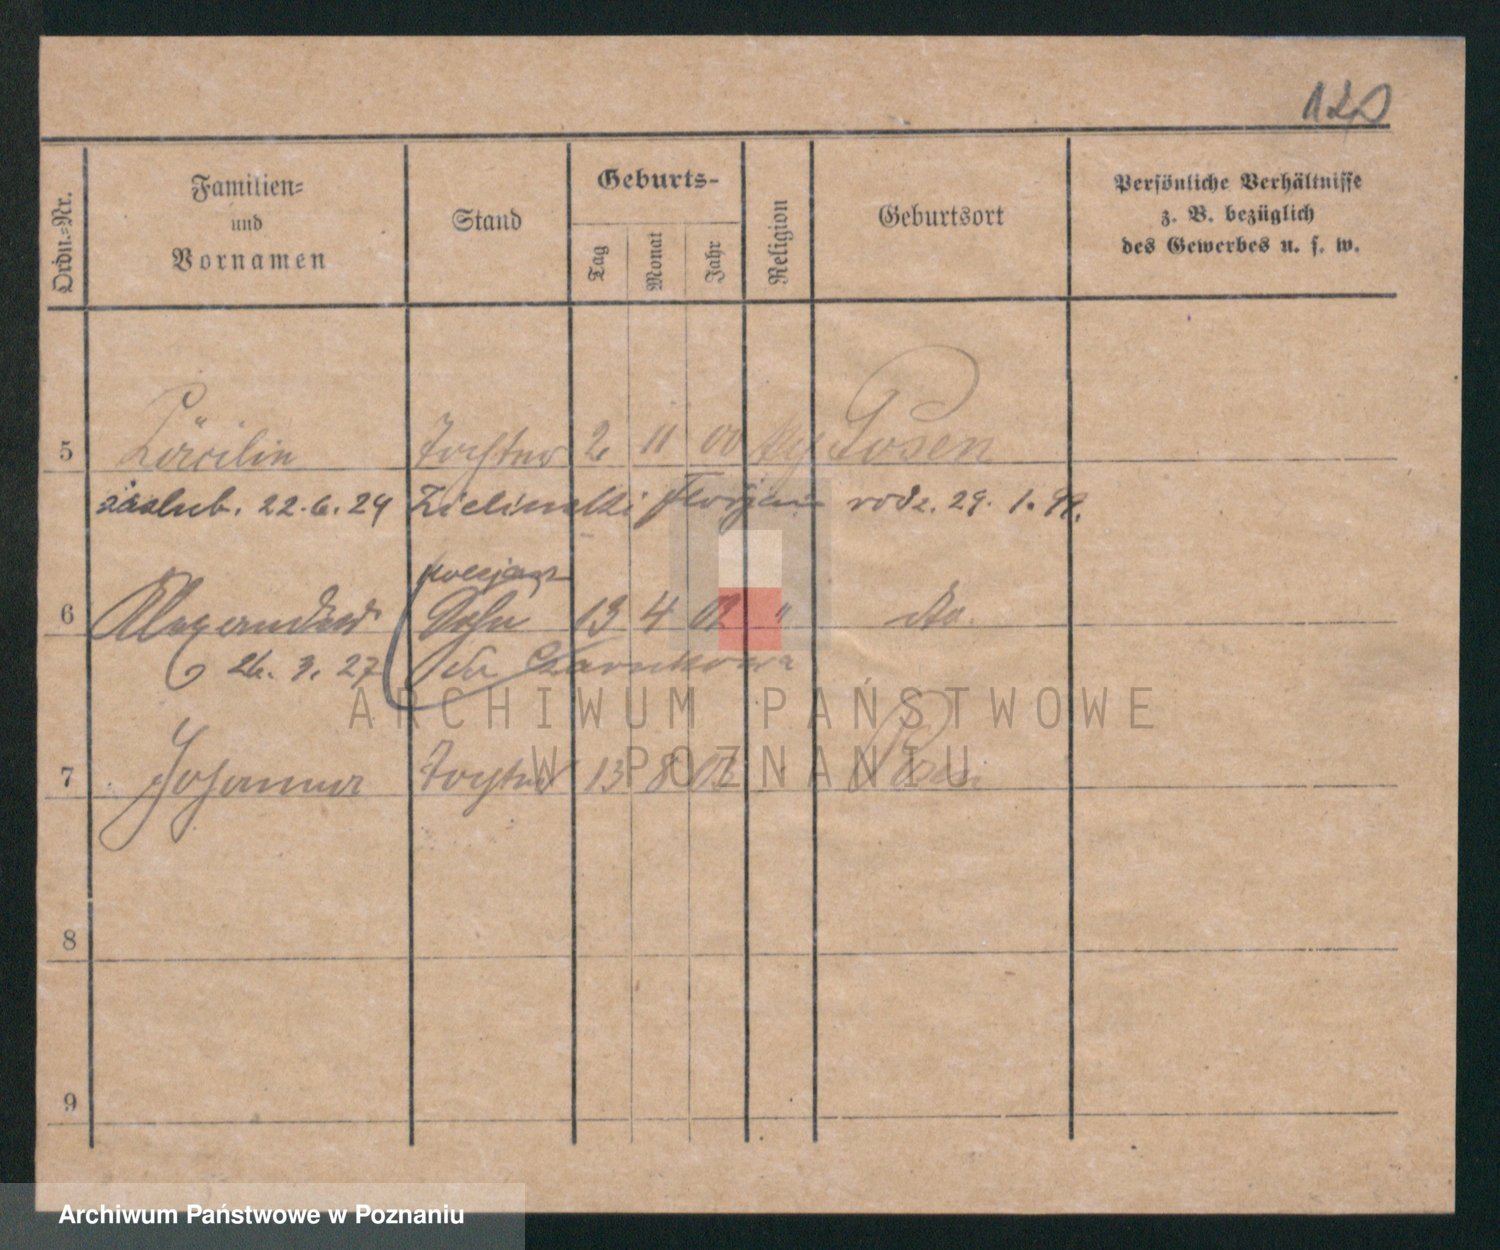 120
Ordn.-Nr.
Familien-
und
Vornamen
Stand
Geburts-
Tag
Monat
Jahr
Religion
Geburtsort
Persönliche Verhältnisse
z. B. bezüglich
des Gewerbes u. s. w.
5 Cäcilie Tochter 2 11 00 Posen
zaslub. 22.6.24 Zielinski Florjan rodz. 29. 1. 99.
6 Alexander Sohn 13 4 02 " do.
26. 3. 27 Czarnkowa
7 Johanna Tochter 13 8 Posen
8
9
ARCHIWUM PAŃSTWOWE
W POZNANIU
Archiwum Państwowe w Poznaniu